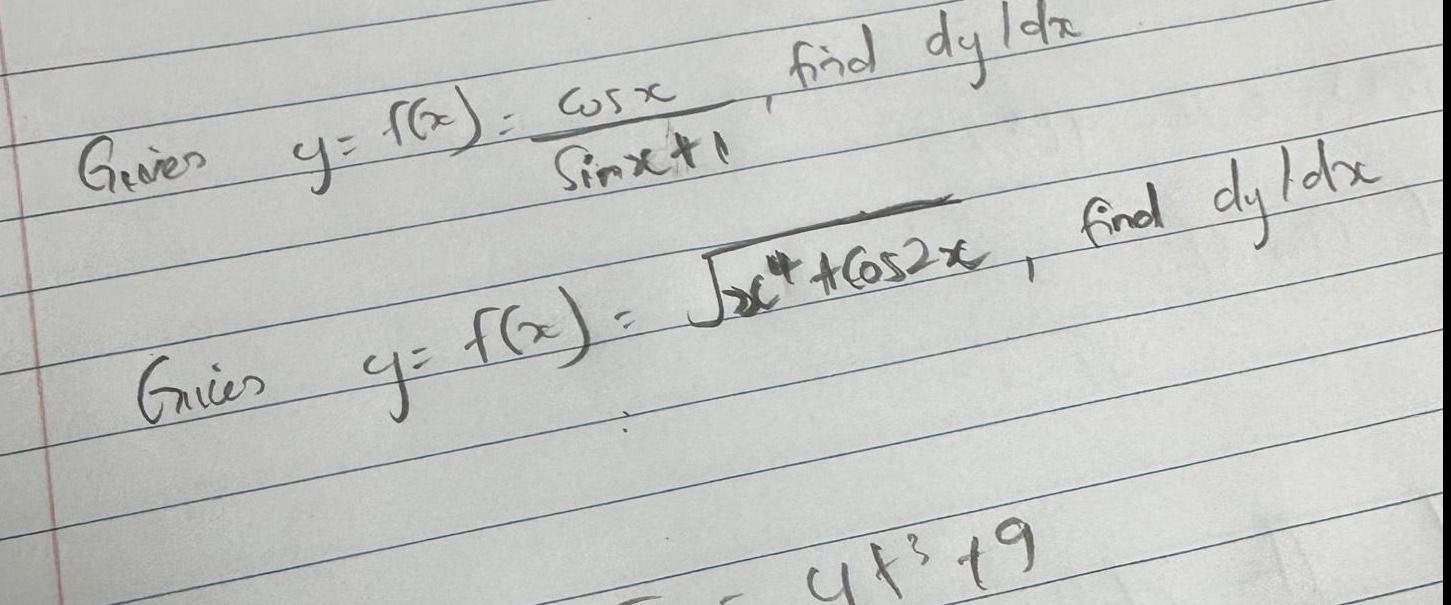 Given y = f(x) = cosx / sinx + 1, find dy/dx
Given y = f(x) = √x⁴ + cos2x, find dy/dx
4t³ + 9